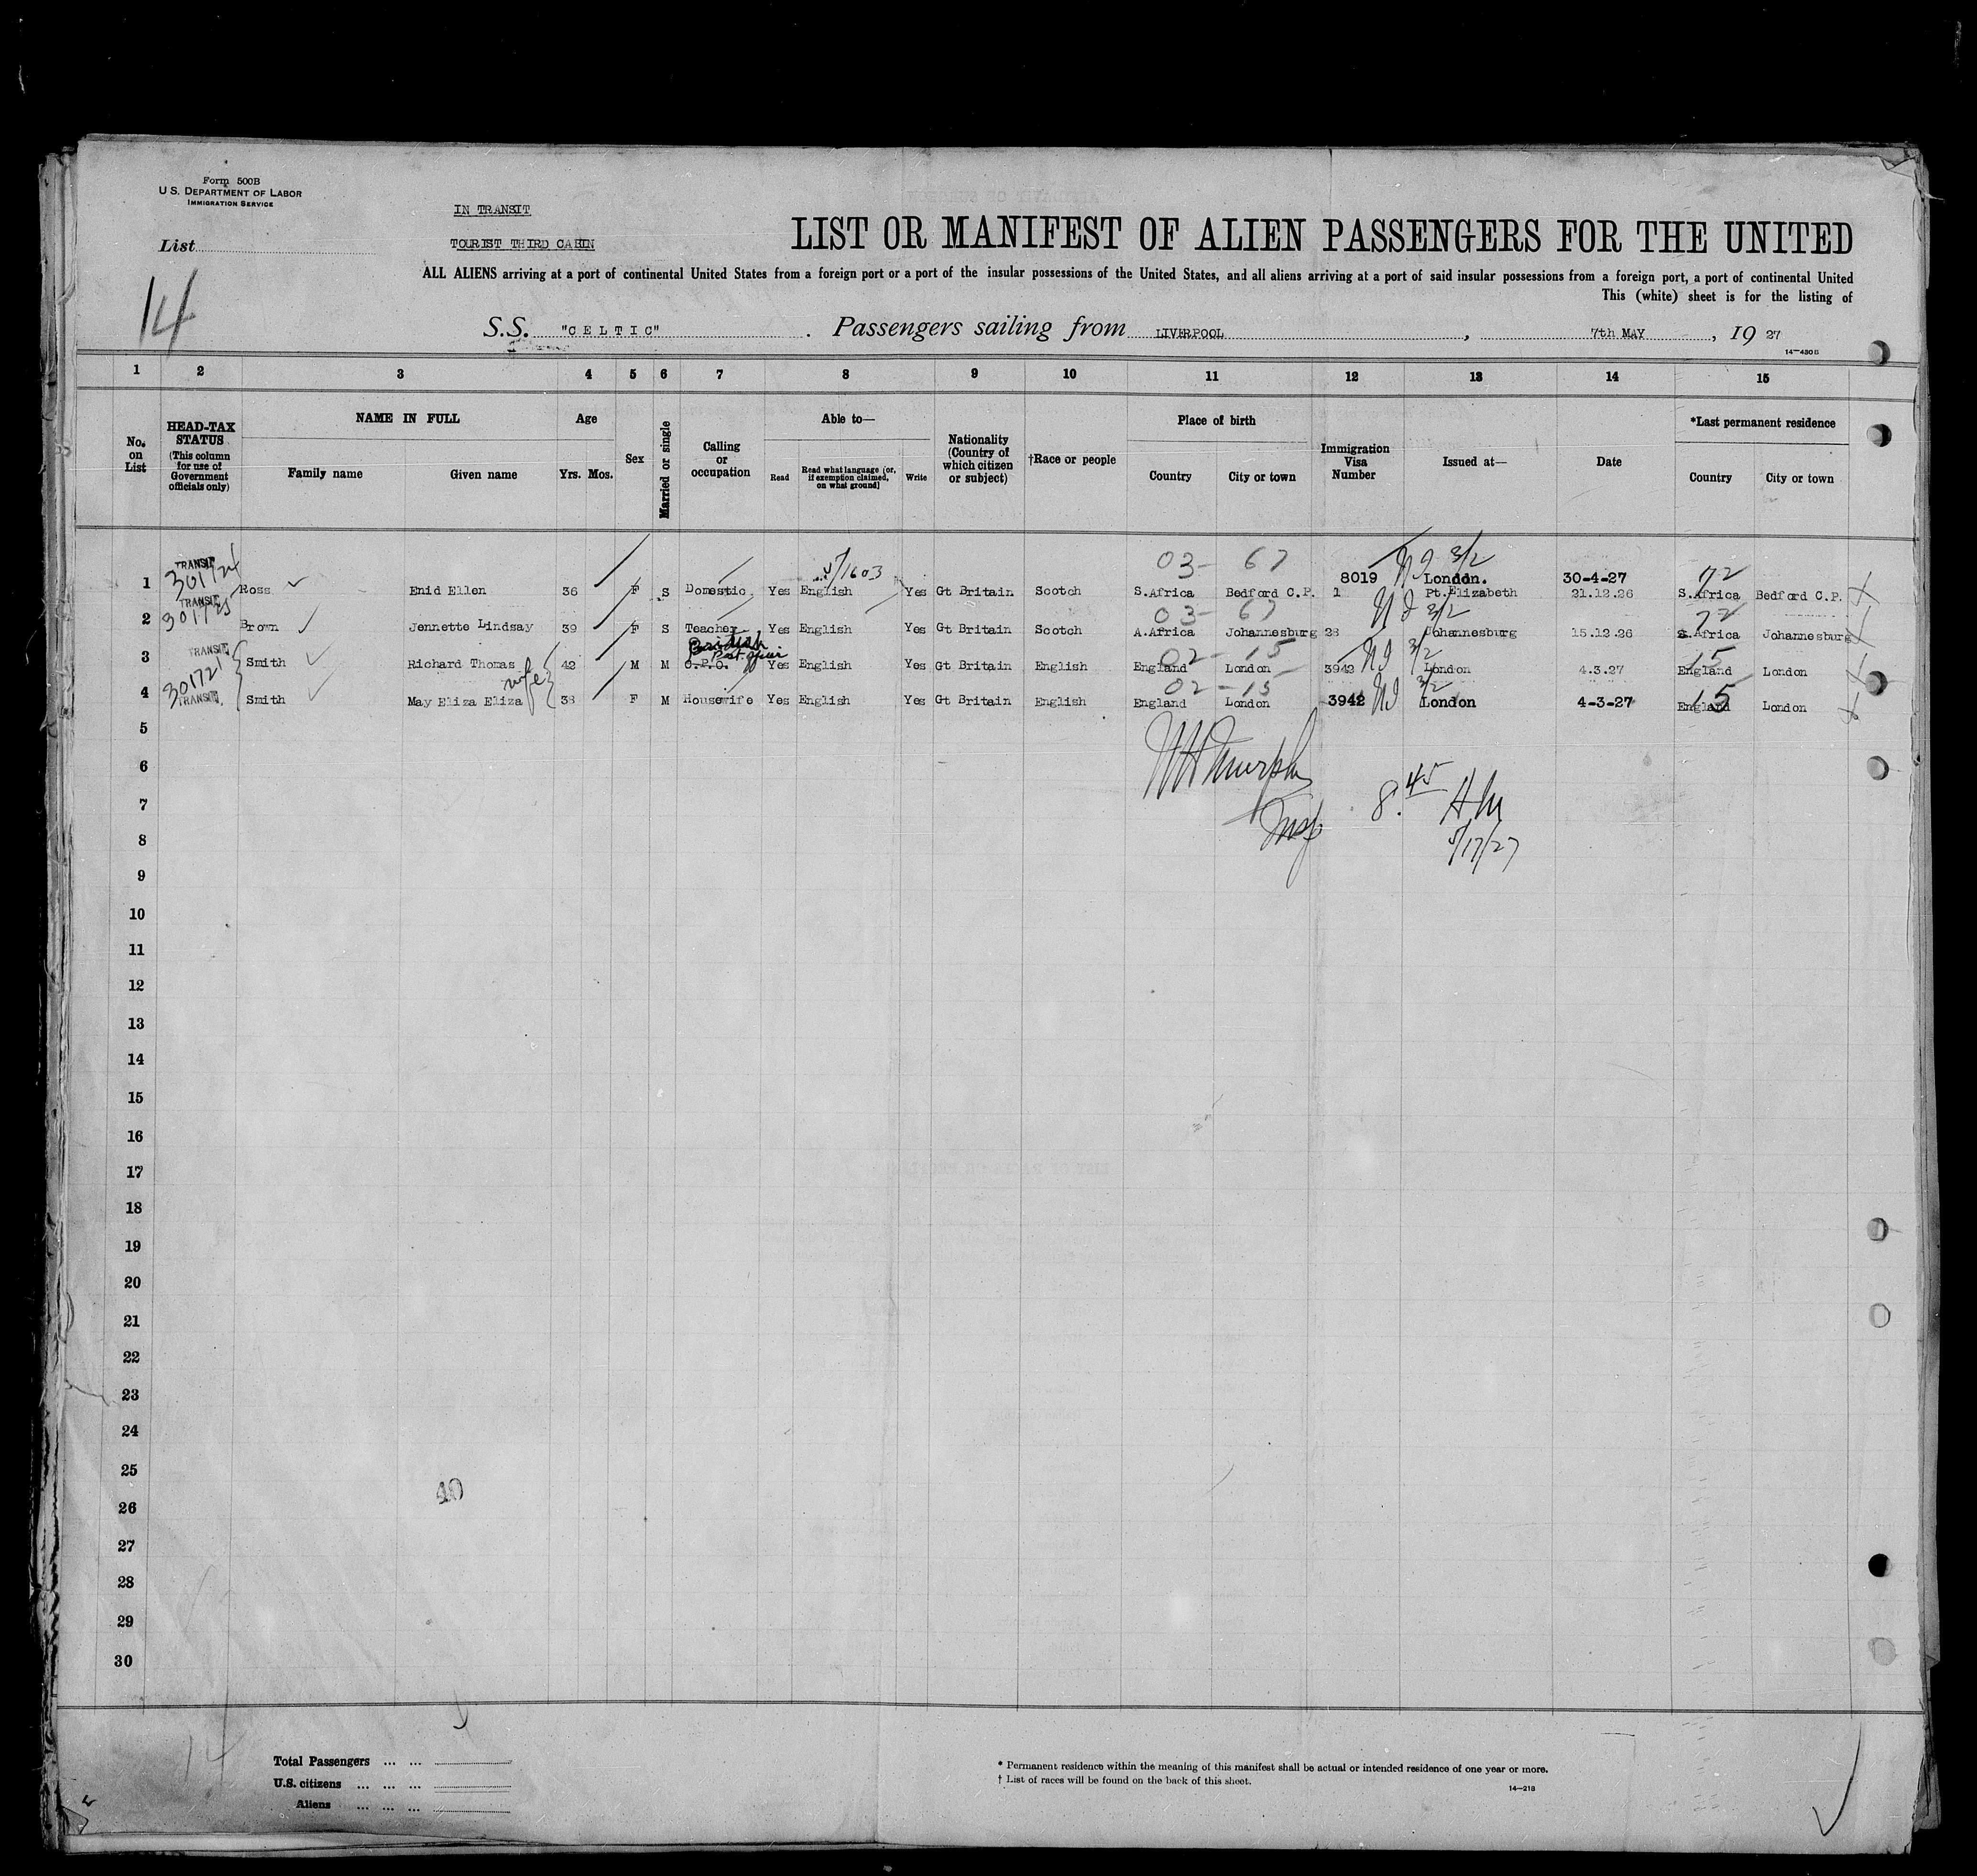 Form 500B
U.S. DEPARTMENT OF LABOR
IMMIGRATION SERVICE
IN TRANSIT
List
TOURIST THIRD CABIN
LIST OR MANIFEST OF ALIEN PASSENGERS FOR THE UNITED
ALL ALIENS arriving at a port of continental United States from a foreign port or a port of the insular possessions of the United States, and all aliens arriving at a port of said insular possessions from a foreign port, a port of continental United
This (white) sheet is for the listing of
14
S.S. "CELTIC". Passengers sailing from LIVERPOOL, 7th MAY, 19 27
14—430B
1 2 3 4 5 6 7 8 9 10 11 12 13 14 15
No. on List
HEAD-TAX STATUS (This column for use of Government officials only)
NAME IN FULL Family name Given name
Age Yrs. Mos.
Sex
Married or single
Calling or occupation
Able to— Read Read what language [or, if exemption claimed, on what ground] Write
Nationality (Country of which citizen or subject)
†Race or people
Place of birth Country City or town
Immigration Visa Number
Issued at—
Date
*Last permanent residence Country City or town
TRANSIT 5/1603 03- 67 NI 3/2 72
1 Ross Enid Ellen 36 F S Domestic Yes English Yes Gt Britain Scotch S.Africa Bedford C.P. 8019 London. 30-4-27 S.Africa Bedford C.P.
1 Pt.Elizabeth 21.12.26
TRANSIT 301725 03- 67 NI 3/2 72
2 Brown Jennette Lindsay 39 F S Teacher Yes English Yes Gt Britain Scotch A.Africa Johannesburg 28 Johannesburg 15.12.26 S.Africa Johannesburg
TRANSIT British Post Office 02-15 NI 3/2 15
3 Smith Richard Thomas 42 M M G.P.O. Yes English Yes Gt Britain English England London 3942 London 4.3.27 England London
301721 TRANSIT wife 02-15 NI 3/2 15
4 Smith May Eliza Eliza 38 F M Housewife Yes English Yes Gt Britain English England London 3942 London 4-3-27 England London
5
6 Murphy
7 Insp 8.45 AM
8 5/17/27
9
10
11
12
13
14
15
16
17
18
19
20
21
22
23
24
25
40
26
27
28
29
30
14
Total Passengers ... ...
U.S. citizens ... ... ...
Aliens ... ... ...
* Permanent residence within the meaning of this manifest shall be actual or intended residence of one year or more.
† List of races will be found on the back of this sheet.
14—218